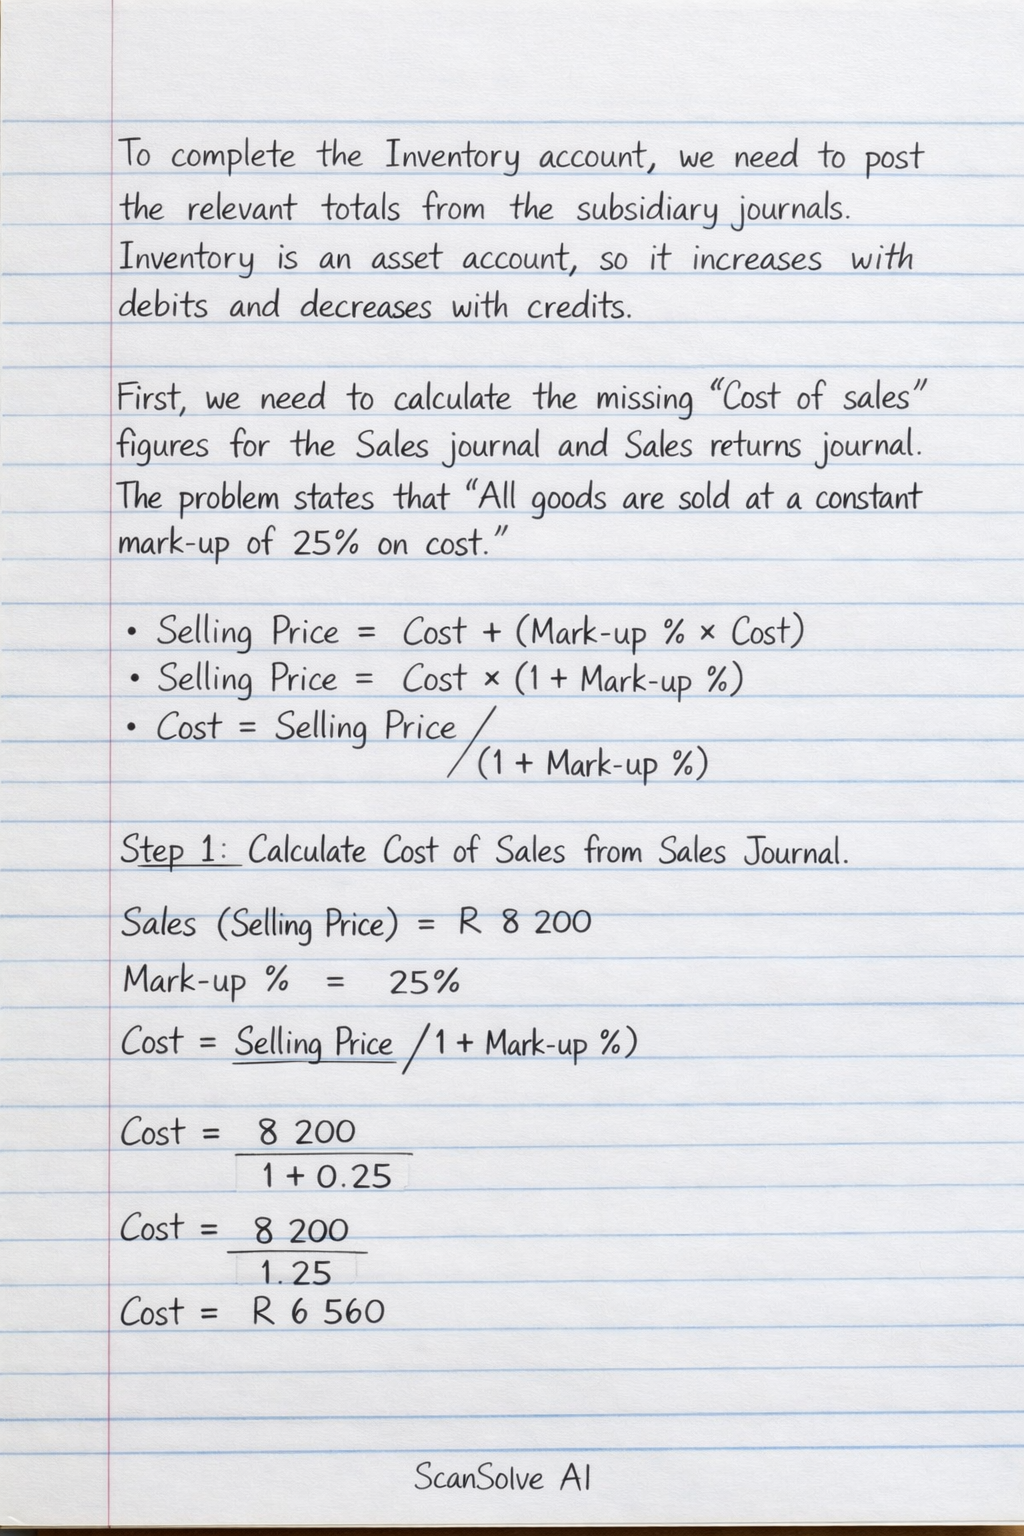 To complete the Inventory account, we need to post
the relevant totals from the subsidiary journals.
Inventory is an asset account, so it increases with
debits and decreases with credits.
First, we need to calculate the missing “Cost of sales”
figures for the Sales journal and Sales returns journal.
The problem states that “All goods are sold at a constant
mark-up of 25% on cost.”
• Selling Price = Cost + (Mark-up % × Cost)
• Selling Price = Cost × (1 + Mark-up %)
• Cost = Selling Price /
(1 + Mark-up %)
Step 1: Calculate Cost of Sales from Sales Journal.
Sales (Selling Price) = R 8 200
Mark-up % = 25%
Cost = Selling Price / 1 + Mark-up %)
Cost = 8 200
1 + 0.25
Cost = 8 200
1.25
Cost = R 6 560
ScanSolve AI